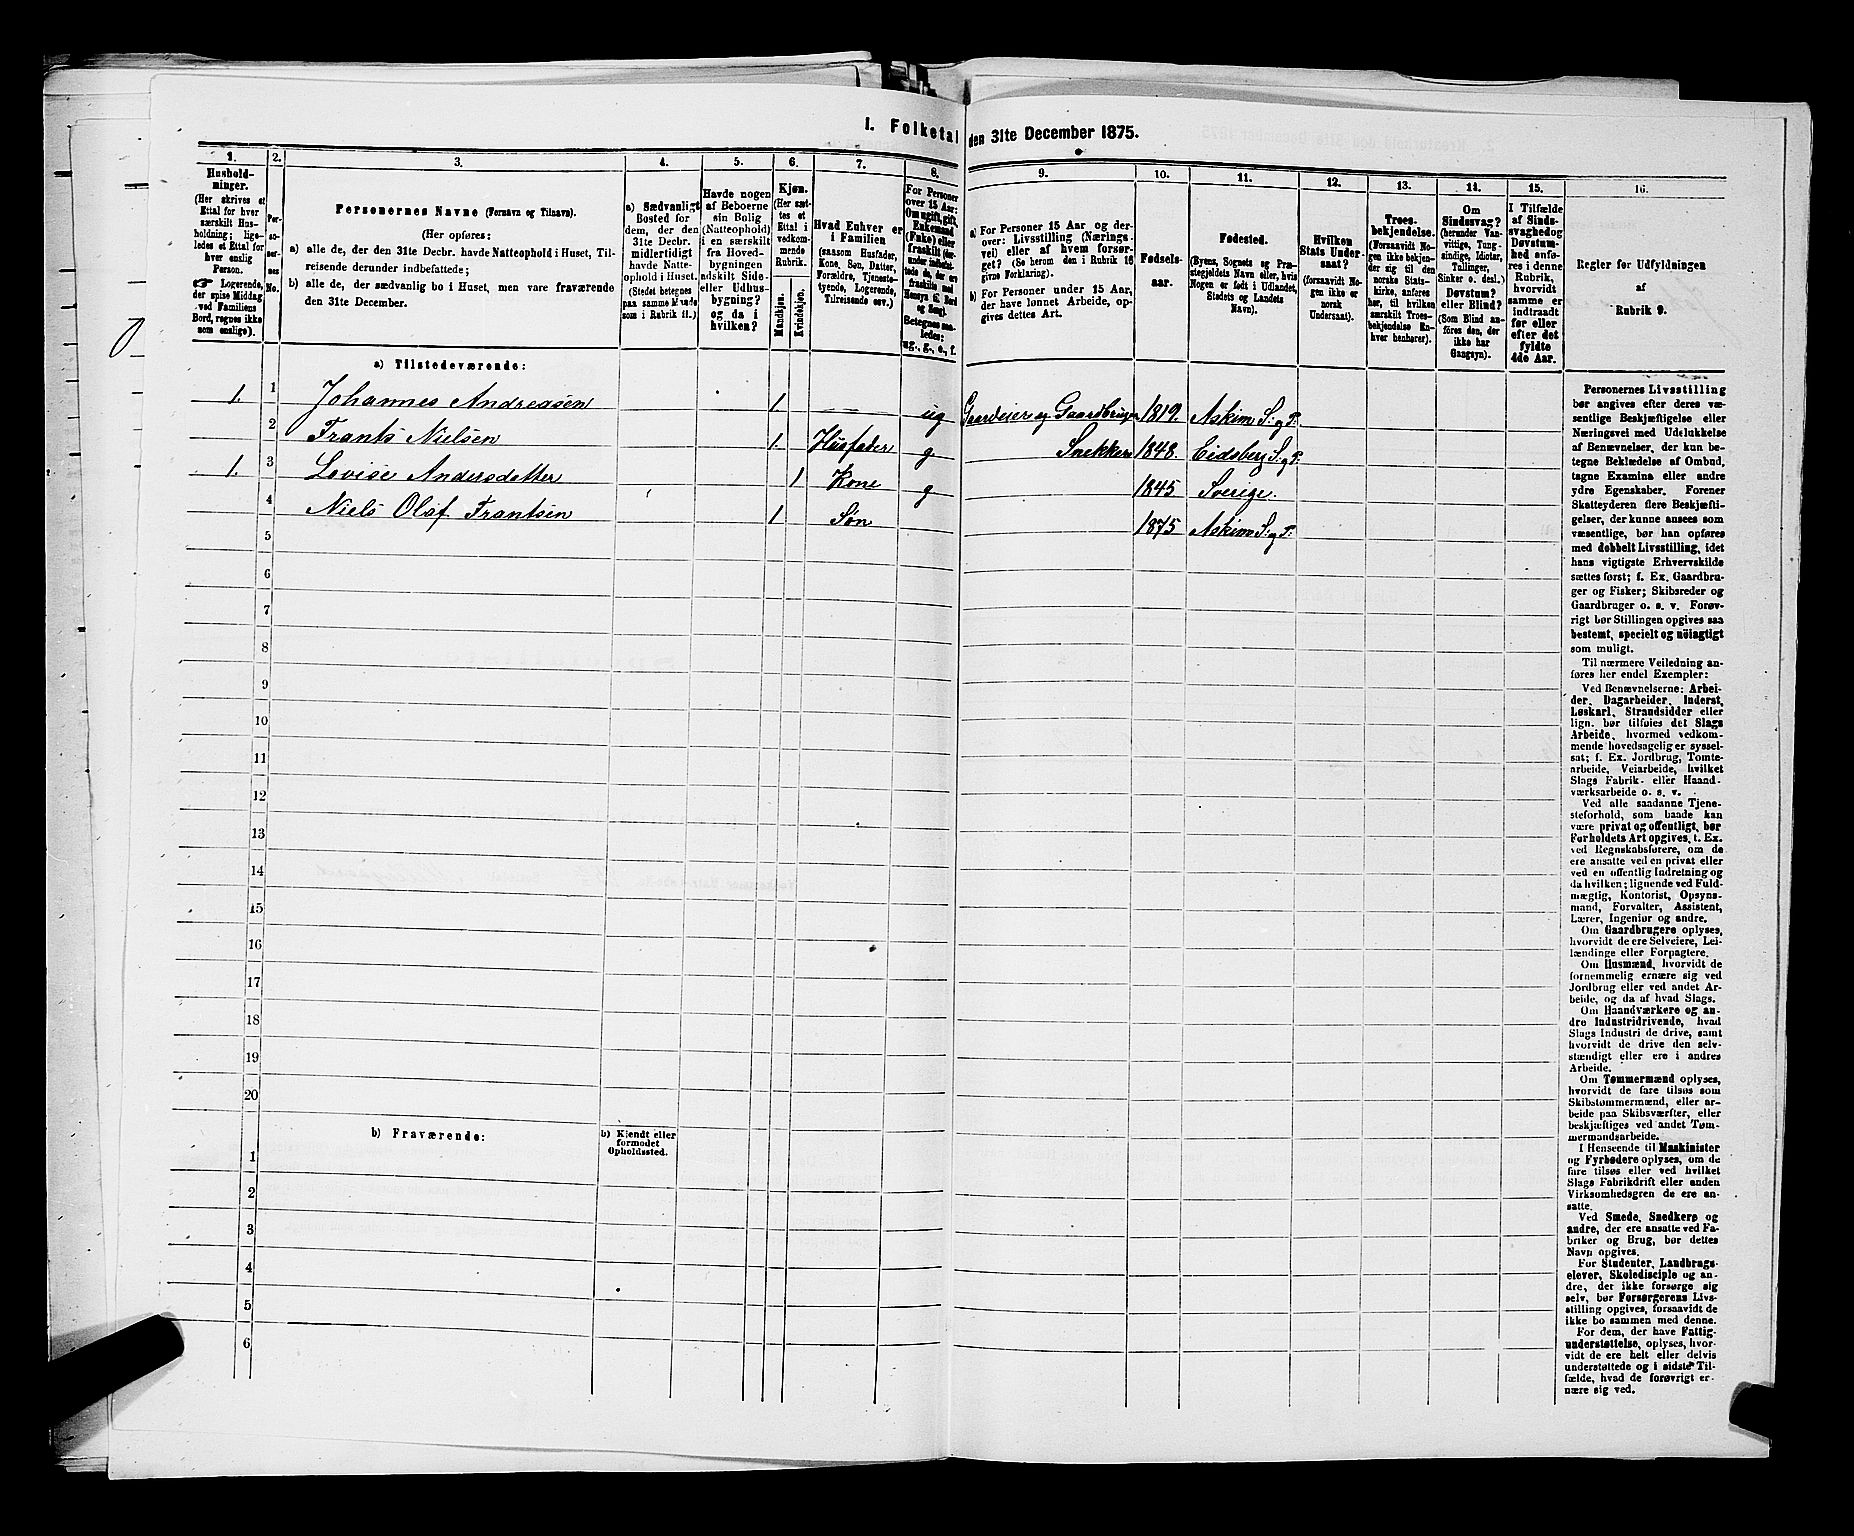 I. Folketal den 31te December 1875.
1. 2. 3. 4. 5. 6. 7. 8. 9. 10. 11. 12. 13. 14. 15. 16.
Hushold-
ninger.
(Her skrives et
Ettal for hver
særskilt Hus-
holdning; lige-
ledes et Ettal for
hver enslig
Person.
Logerende,
der spise Middag
ved Familiens
Bord, regnes ikke
som enslige).
Per-
so-
ner-
nes
No.
Personernes Navne (Fornavn og Tilnavn).
(Her opføres:
a) alle de, der den 31te Decbr. havde Natteophold i Huset, Til-
reisende derunder indbefattede;
b) alle de, der sædvanlig bo i Huset, men vare fraværende
den 31te December.
a) Sædvanligt
Bosted for
dem, der den
31te Decbr.
midlertidigt
havde Natte-
ophold i Huset.
(Stedet betegnes
paa samme Maade
som i Rubrik 11.)
Havde nogen
af Beboerne
sin Bolig
(Natteophold)
i en særskilt
fra Hoved-
bygningen
adskilt Side-
eller Udhus-
bygning?
og da i
hvilken?
Kjøn.
(Her sæt-
tes et
Ettal i
vedkom-
mende
Rubrik.
Mandkjøn.
Kvindekjøn.
Hvad Enhver er
i Familien
(saasom Husfader,
Kone, Søn, Datter,
Forældre, Tjeneste-
tyende, Logerende,
Tilreisende osv.)
For Personer
over 15 Aar:
Om ugift, gift,
Enkemand
(Enke) eller
fraskilt
Betegnes saa-
ledes:
ug., g., e., f.
a) For Personer 15 Aar og der-
over: Livsstilling (Nærings-
vei) eller af hvem forsør-
get? (Se herom den i Rubrik 16
givne Forklaring).
b) For Personer under 15 Aar,
der have lønnet Arbeide, op-
gives dettes Art.
Fødsels-
aar.
Fødested.
(Byens, Sognets og Præ-
stegjeldets Navn eller, hvis
Nogen er født i Udlandet,
Stedets og Landets
Navn).
Hvilken
Stats Under-
saat?
(forsaavidt No-
gen ikke er
norsk
Undersaat).
Troes-
bekjendelse.
(Forsaavidt No-
gen ikke bekjen-
der sig til den
norske Stats-
kirke, anføres
her, til hvilken
særskilt Troes-
bekjendelse En-
hver henhører).
Om
Sindssvag?
(herunder Van-
vittige, Tung-
sindige, Idioter,
Tullinger,
Sinker o. desl.)
Døvstum?
eller Blind?
(Som Blind an-
føres den, der
ikke har
Gangsyn).
I Tilfælde
af Sinds-
svaghed og
Døvstum-
hed anfø-
res i denne
Rubrik,
hvorvidt
samme er
indtraadt
før eller
efter det
fyldte
4de Aar.
Regler for Udfyldningen
af
Rubrik 9.
a) Tilstedeværende:
1. 1 Johannes Andreasen 1. ug Gaardeier og Gaardbruger 1819. Askim S: og P:
2 Frants Nielsen 1. Husfader g Snekker 1848. Eidsberg S: og P.
1. 3 Lovise Andersdatter 1 Kone g 1845 Sverige.
4 Niels Olaf Frantsen 1 Søn 1875 Askim S: og P:
5
6
7
8
9
10
11
12
13
14
15
16
17
18
19
20
b) Fraværende:
b) Kjendt eller
formodet
Opholdssted.
1
2
3
4
5
6
Personernes Livsstilling
bør angives efter deres væ-
sentlige Beskjæftigelse eller
Næringsvei med Udelukkelse
af Benævnelser, der kun be-
tegne Beklædelse af Ombud,
tagne Examina eller andre
ydre Egenskaber. Forener
Skatteyderen flere Beskjæfti-
gelser, der kunne ansees som
væsentlige, bør han opføres
med dobbelt Livsstilling, idet
hans vigtigste Erhvervskilde
sættes først; f. Ex. Gaardbru-
ger og Fisker; Skibsreder og
Gaardbruger o. s. v. Forøv-
rigt bør Stillingen opgives saa
bestemt, specielt og nöiagtigt
som muligt.
Til nærmere Veiledning an-
føres her endel Exempler:
Ved Benævnelserne: Arbei-
der, Dagarbeider, Inderst,
Løskarl, Strandsidder eller
lign. bør tilføies det Slags
Arbeide, hvormed vedkom-
mende hovedsagelig er syssel-
sat; f. Ex. Jordbrug, Tomte-
arbeide, Veiarbeide, hvilket
Slags Fabrik- eller Haand-
værksarbeide o. s. v.
Ved alle saadanne Tjene-
steforhold, som baade kan
være privat og offentligt, bør
Forholdets Art opgives, f. Ex.
ved Regnskabsførere, om de
ere ansatte ved en privat eller
ved en offentlig Indretning og
da hvilken; lignende ved Fuld-
mægtig, Kontorist, Opsyns-
mand, Forvalter, Assistent,
Lærer, Ingeniør og andre.
Om Gaardbrugere oplyses,
hvorvidt de ere Selveiere, Lei-
lændinge eller Forpagtere.
Om Husmænd, hvorvidt de
fornemmelig ernære sig ved
Jordbrug eller ved andet Ar-
beide, og da af hvad Slags.
Om Haandværkere og an-
dre Industridrivende, hvad
Slags Industri de drive, samt
hvorvidt de drive den selv-
stændigt eller ere i andres
Arbeide.
Om Tømmermænd oplyses,
hvorvidt de fare tilsøs som
Skibstømmermænd, eller ar-
beide paa Skibsværfter, eller
beskjæftiges ved andet Tøm-
mermandsarbeide.
I Henseende til Maskinister
og Fyrbødere oplyses, om de
fare tilsøs eller ved hvilket
Slags Fabrikdrift eller anden
Virksomhedsgren de ere an-
satte.
Ved Smede, Snedkere og
andre, der ere ansatte ved Fa-
briker og Brug, bør dettes
Navn opgives.
For Studenter, Landbrugs-
elever, Skoledisciple og an-
dre, der ikke forsørge sig
selv, bør Forsørgerens Livs-
stilling opgives, forsaavidt de
ikke bo sammen med denne.
For dem, der have Fattig-
understøttelse, oplyses, hvor-
vidt de ere helt eller delvis
understøttede og i sidste Til-
fælde, hvad de forøvrigt er-
nære sig ved.